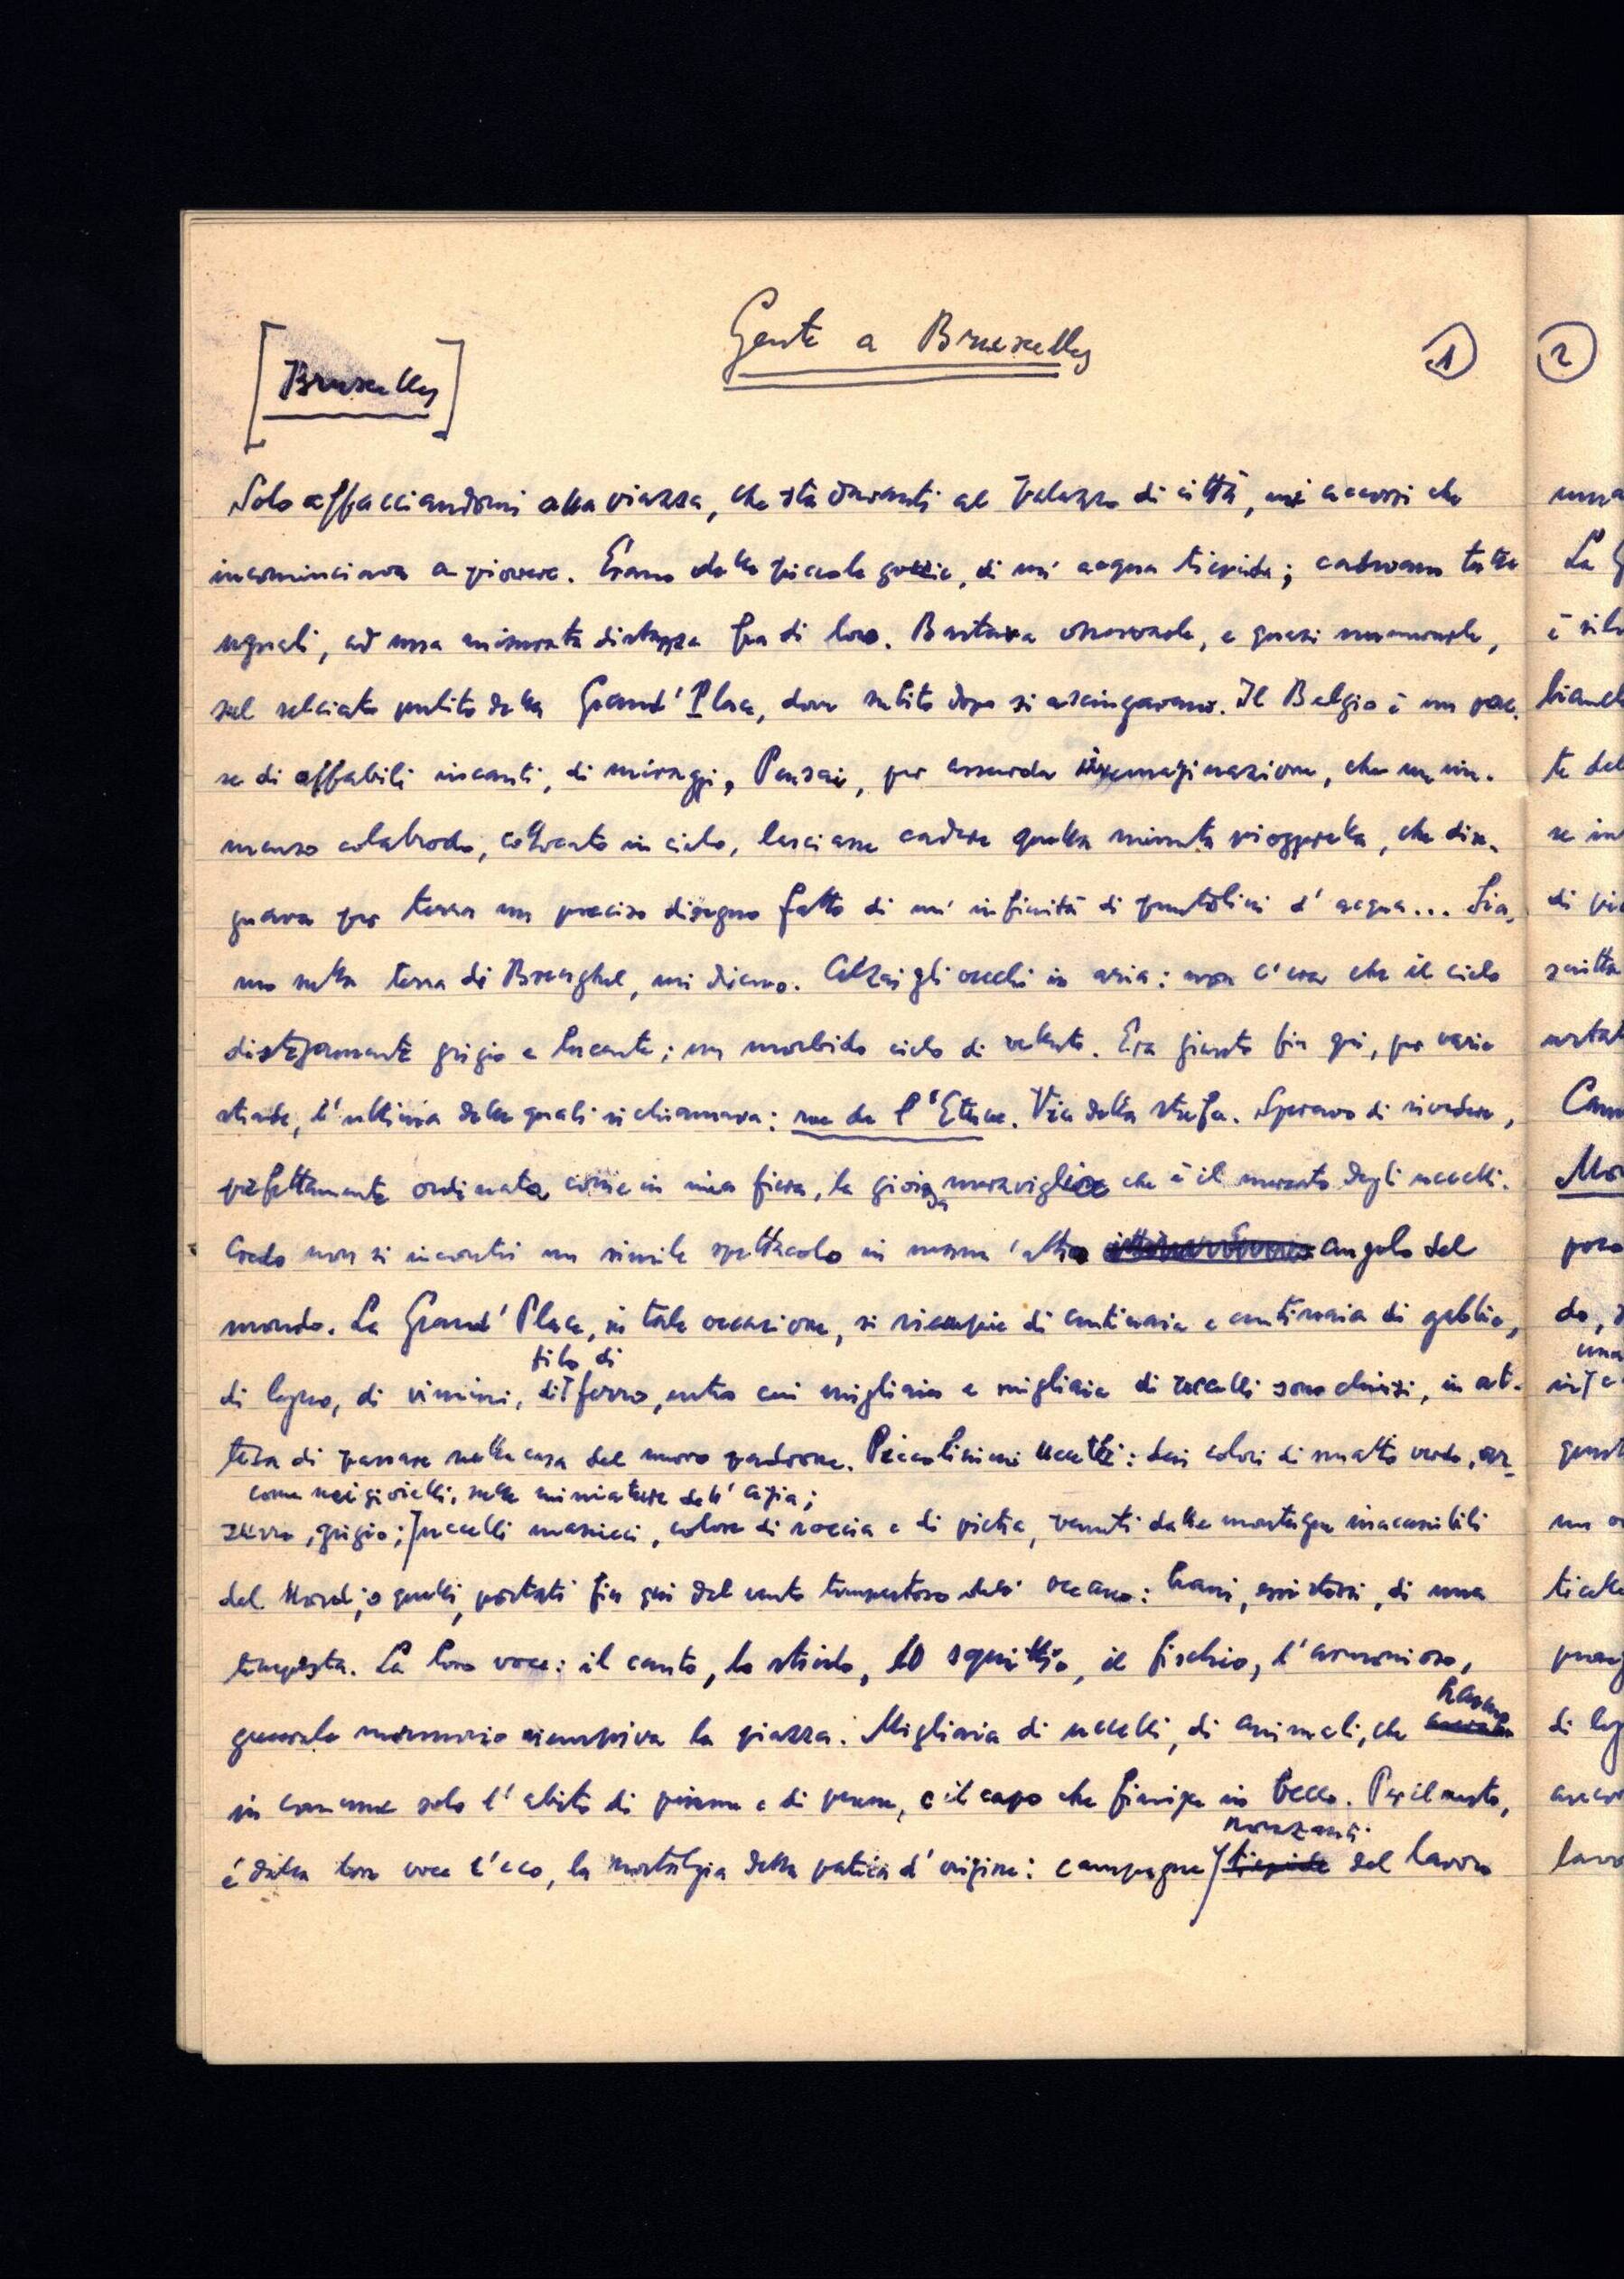 Gente a Bruxelles
[Bruxelles]
1
Solo affacciandomi alla piazza, che sta davanti al Palazzo di città, mi accorsi che
incominciava a piovere. Erano delle piccole gocce, di un' acqua tiepida; cadevano tutte
uguali, ad una misurata distanza fra di loro. Bastava osservarle, e quasi numerarle,
sul selciato pulito della Grand' Place, dove subito dopo si asciugavano. Il Belgio è un pae-
se di affabili incanti, di miraggi. Pensai, per assurda immaginazione, che un im-
menso colabrodo, collocato in cielo, lasciasse cadere quella minuta pioggerella, che dise-
gnava per terra un preciso disegno fatto di un' infinità di puntolini d' acqua... Sia-
mo nella terra di Brueghel, mi dicevo. Alzai gli occhi in aria: non c'era che il cielo
distesamente grigio e lucente; un morbido cielo di velluto. Era giunto fin qui, per varie
strade, l'ultima delle quali si chiamava: rue de l'Etuve. Via della stufa. Speravo di rivedere,
perfettamente ordinata come in una fiera, la gioiosa meraviglia che è il mercato degli uccelli.
Credo non si incontri un simile spettacolo in nessun 'altro angolo del
mondo. La Grand' Place, in tale occasione, si riempie di centinaia e centinaia di gabbie,
filo di
di legno, di vimini, di ferro, entro cui migliaia e migliaia di uccelli sono chiusi, in at-
tesa di passare nella casa del nuovo padrone. Piccolissimi uccelli: dai colori di smalto verde, az-
come nei gioielli, nelle miniature dell' Asia;
zurro, grigio; uccelli massicci, colore di roccia e di pietra, venuti dalle montagne inaccessibili
del Nord; o quelli, portati fin qui dal vento tempestoso dell' oceano: brani, essi stessi, di una
tempesta. La loro voce: il canto, lo strido, lo squittio, il fischio, l'armonioso,
hanno
generale mormorio riempiva la piazza. Migliaia di uccelli, di animali, che
in comune solo l'abito di piume e di penne, e il capo che finisce in becco. Per il resto,
nonzanti
è della loro voce l'eco, la nostalgia della patria d'origine: campagne del lavoro
2